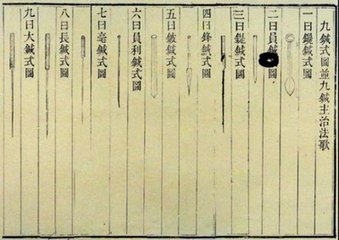 九鍼式圖並九鍼主治法歌
一曰鑱鍼式圖
二曰員鍼圖
三曰鍉鍼式圖
四曰鋒鍼式圖
五曰鈹鍼式圖
六曰員利鍼式圖
七曰毫鍼式圖
八曰長鍼式圖
九曰大鍼式圖